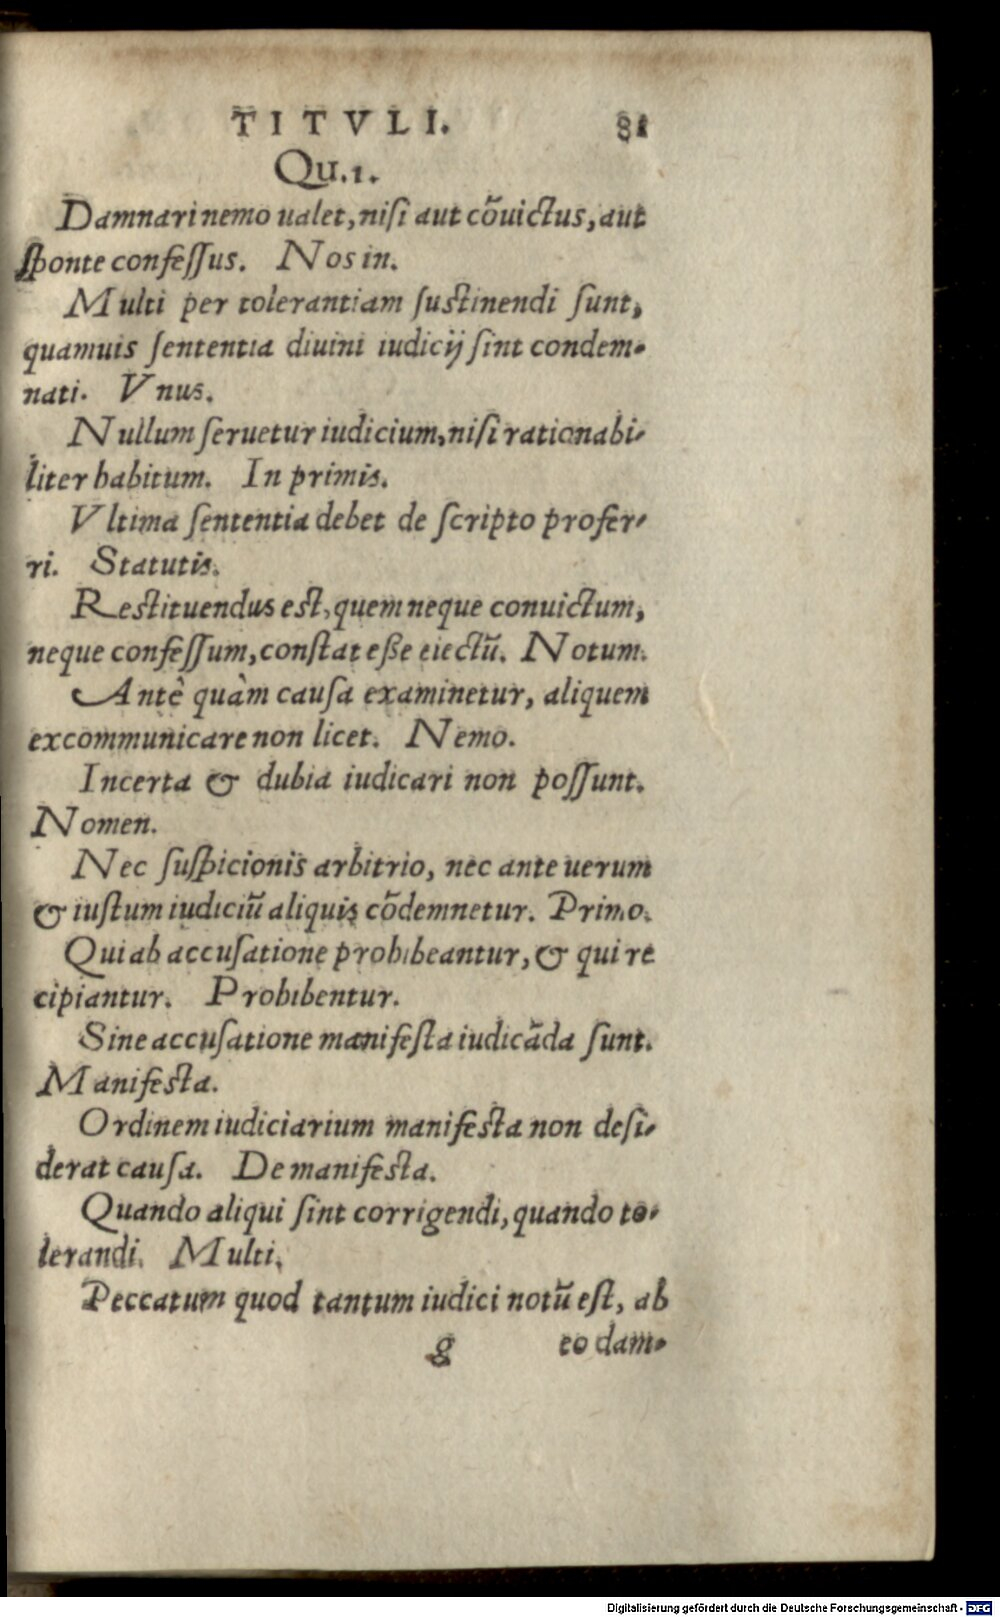 TITVLI. 81
Qu.1.
Damnari nemo ualet, nisi aut cõuictus, aut
sponte confessus. Nos in.
Multi per tolerantiam sustinendi sunt,
quamuis sententia diuini iudicij sint condem-
nati. Vnus.
Nullum seruetur iudicium, nisi rationabi-
liter habitum. In primis.
Vltima sententia debet de scripto profer-
ri. Statutis.
Restituendus est, quem neque conuictum,
neque confessum, constat eße eiectũ. Notum.
Antè quàm causa examinetur, aliquem
excommunicare non licet. Nemo.
Incerta & dubia iudicari non possunt.
Nomen.
Nec suspicionis arbitrio, nec ante uerum
& iustum iudiciũ aliquis cõdemnetur. Primo.
Qui ab accusatione prohibeantur, & qui re
cipiantur. Prohibentur.
Sine accusatione manifesta iudicãda sunt.
Manifesta.
Ordinem iudiciarium manifesta non desi-
derat causa. De manifesta.
Quando aliqui sint corrigendi, quando to-
lerandi. Multi.
Peccatum quod tantum iudici notũ est, ab
g eo dam-
Digitalisierung gefördert durch die Deutsche Forschungsgemeinschaft - DFG